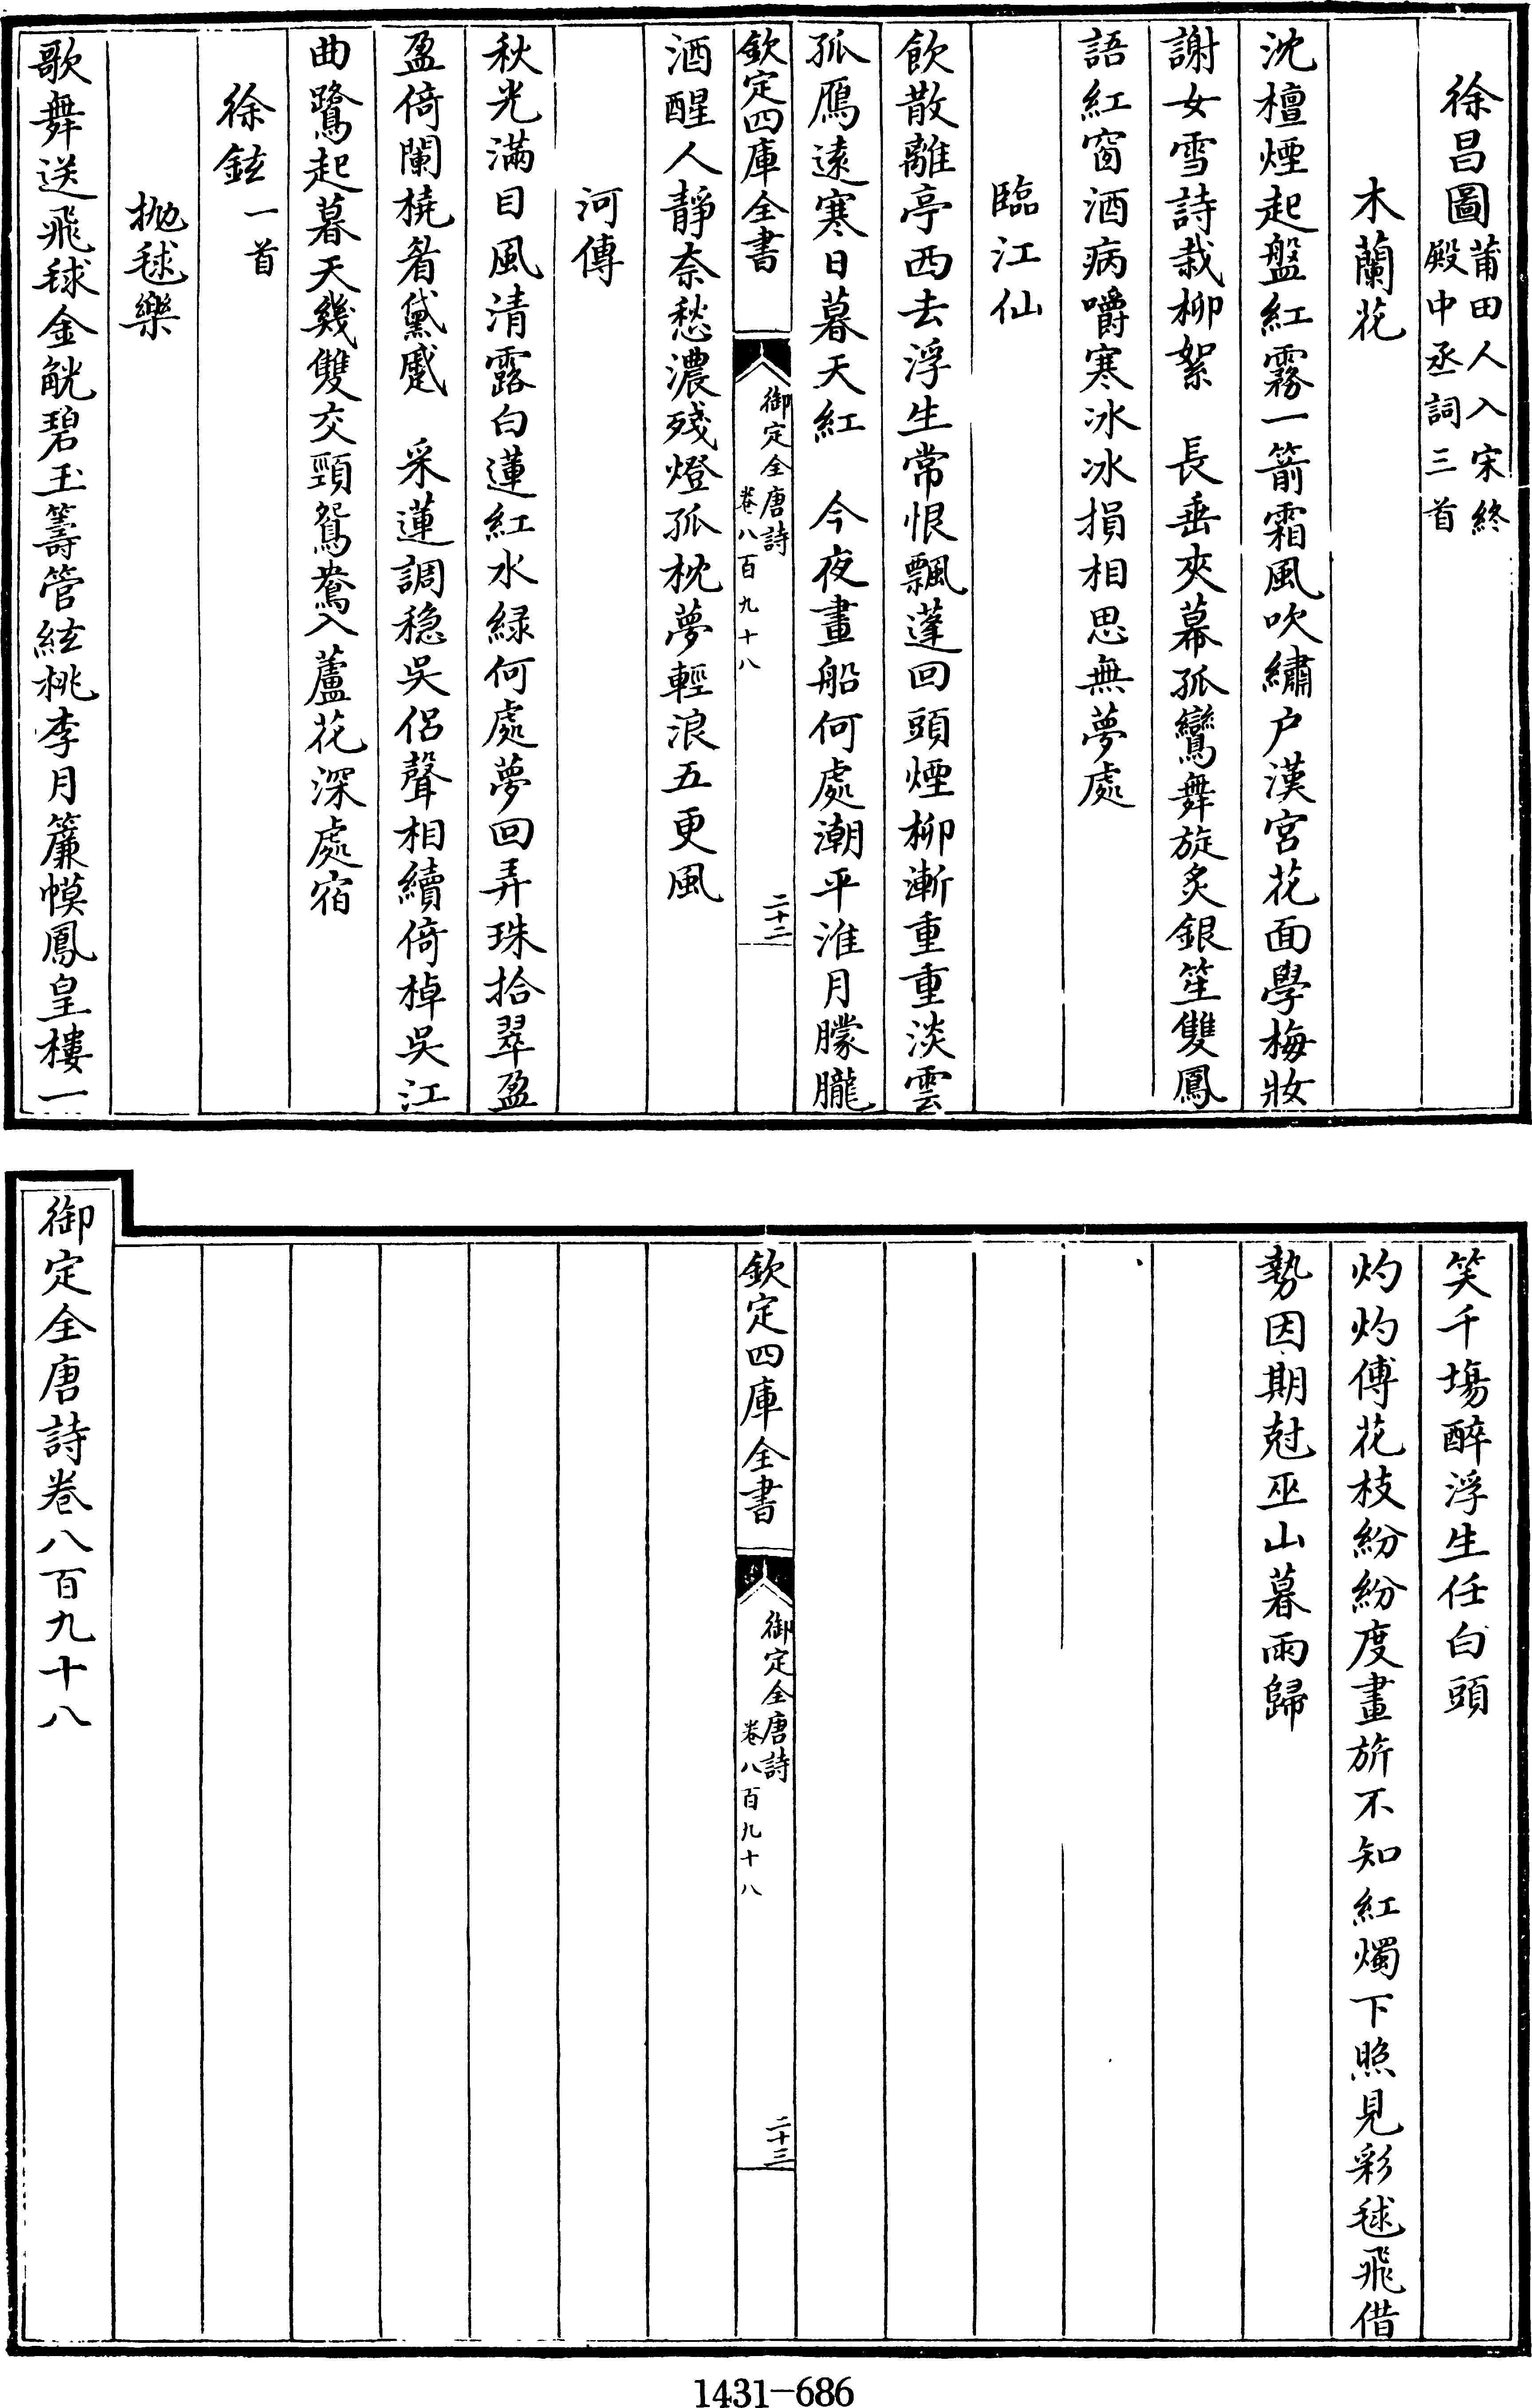 徐昌圖莆田人入宋終殿中丞詞三首
木蘭花
沈檀煙起盤紅霧一箭霜風吹繡户漢宮花面學梅妝
謝女雪詩栽柳絮　長垂夾幕孤鸞舞旋炙銀笙雙鳳
語紅窗酒病嚼寒冰冰損相思無夢處
臨江仙
飲散離亭西去浮生常恨飄蓬回頭煙柳漸重重淡雲
孤鴈遠寒日暮天紅　今夜畫船何處潮平淮月朦朧
欽定四庫全書
御定全唐詩
卷八百九十八
二十二
酒醒人靜奈愁濃殘燈孤枕夢輕浪五更風
河傳
秋光滿目風清露白蓮紅水緑何處夢回弄珠拾翠盈
盈倚闌橈眉黛蹙　采蓮調穏吳侶聲相續倚棹吳江
曲鷺起暮天幾雙交頸鴛鴦入蘆花深處宿
徐鉉一首
抛毬樂
歌舞送飛毬金觥碧玉籌管絃桃李月簾幙鳳皇樓一
笑千塲醉浮生任白頭
灼灼傅花枝紛紛度畫旂不知紅燭下照見彩毬飛借
勢因期尅巫山暮雨歸
欽定四庫全書
御定全唐詩
卷八百九十八
二十三
御定全唐詩卷八百九十八
1431-686